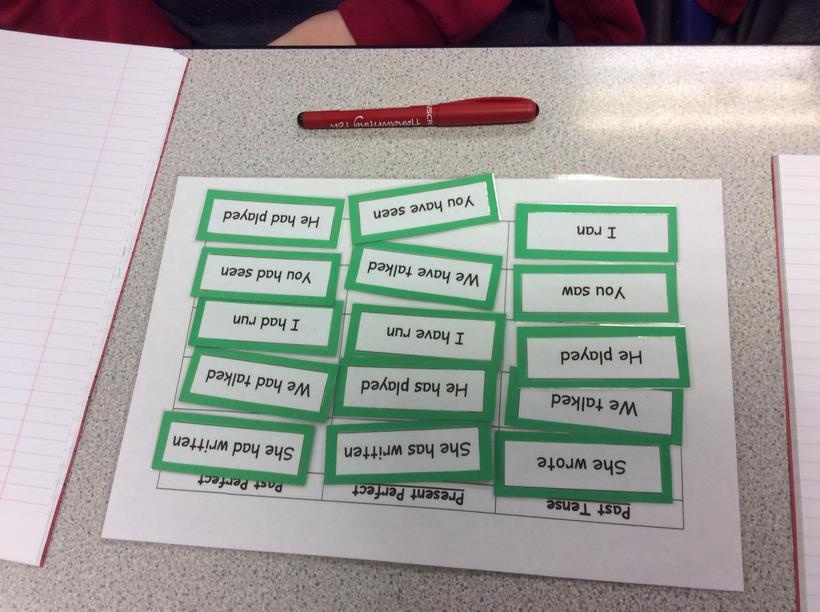 Past Tense
Present Perfect
Past Perfect
She wrote
She has written
She had written
We talked
He has played
We had talked
He played
I have run
I had run
You saw
We have talked
You had seen
I ran
You have seen
He had played
Handwriting Pen